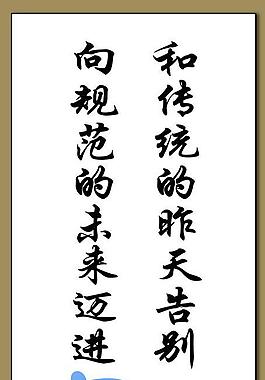 和传统的昨天告别
向规范的未来迈进